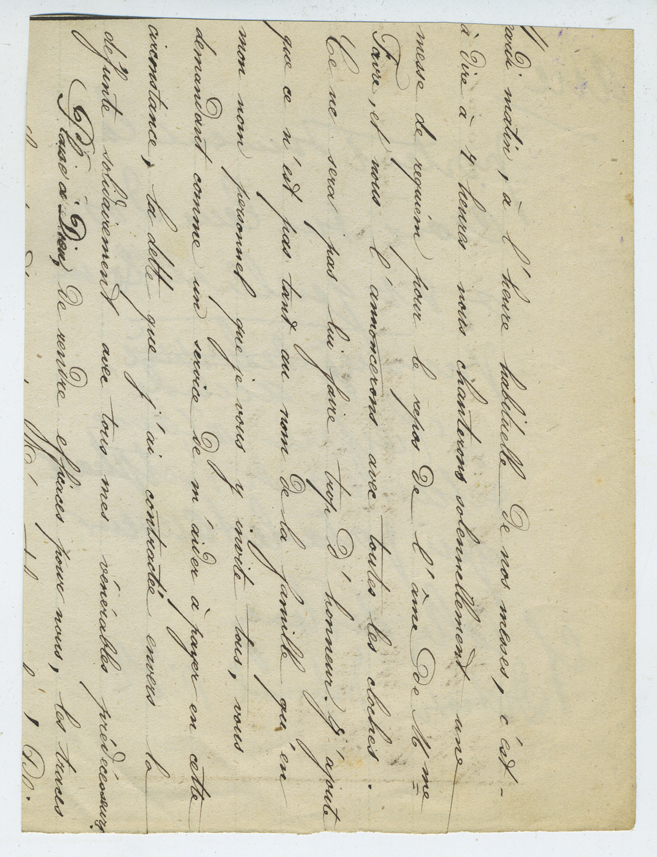 matin, à l'heure habituelle de nos messes, c'est-
à dire à 7 heures nous chanterons solennellement une
messe de requiem pour le repos de l'âme de Mme
Favre, et nous l'annoncerons avec toutes les cloches.
Ce ne sera pas lui faire trop d'honneur. J'ajoute
que ce n'est pas tant au nom de la famille qu'en
mon nom personnel que je vous y invite tous, vous
demandant comme un service de m'aider à payer en cette
circonstance, la dette que j'ai contractée envers la
défunte solidairement avec tous mes vénérables prédécesseurs.
Plaise à Dieu, de rendre efficaces pour nous, les traces